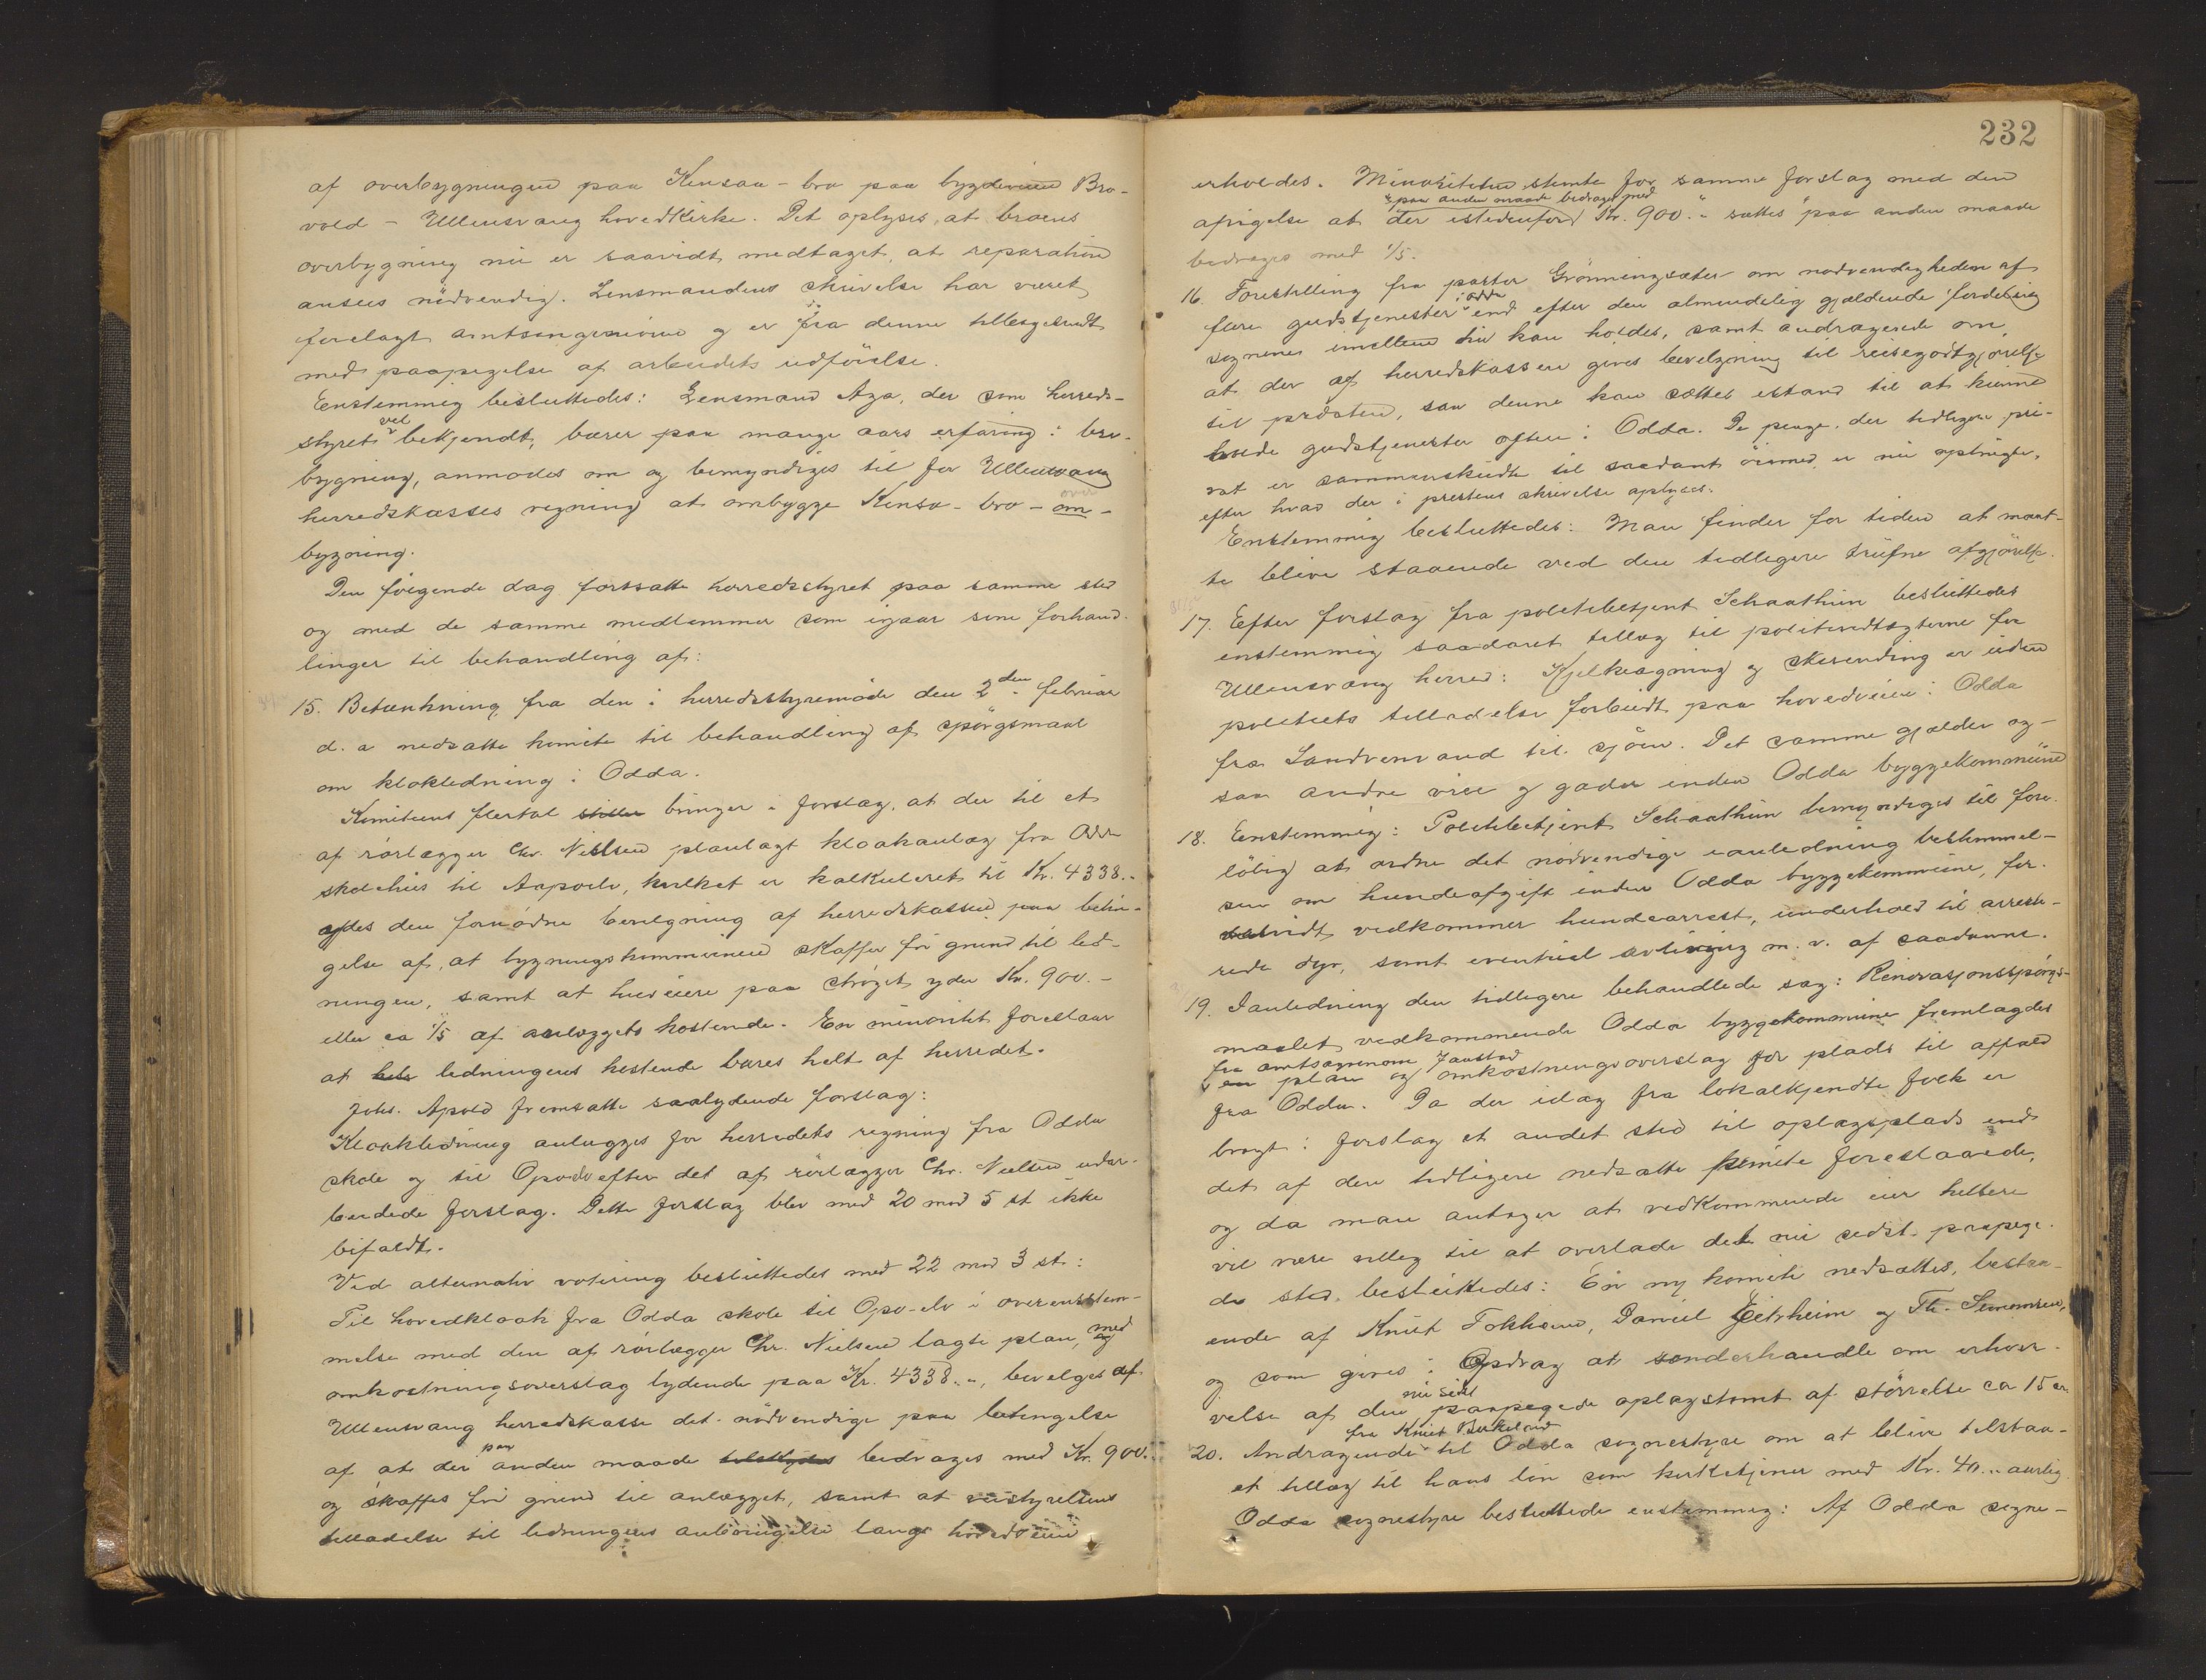 af overbygningen paa Kinsaa-bro paa bygdeveien Bro-
vold - Ullensvang hovedkirke. Det oplyses, at broens
overbygning nu er saavidt medtaget, at reparation
ansees nödvendig. Lensmandens skrivelse har været
forelagt amtsingeniören og er fra denne tilbagesendt
med paapegelse af arbeidets udförelse.
Enstemmig besluttedes: Lensmand Aga, der som herreds-
styret vel bekjendt, bærer paa mange aars erfaring i bro-
bygning, anmodes om og bemyndiges til for Ullensvang
herredskasses regning at ombygge Kinso-bro-om- over
bygning.
Den fölgende dag fortsatte herredsstyret paa samme sted
og med de samme medlemmer som igaar sine forhand-
linger til behandling af:
15. Betænkning fra den i herredsstyremöde den 2den februar
d. a nedsatte komite til behandling af spörgsmaal
om klokledning i Odda.
Komiteens flertal stiller bringer i forslag, at der til et
af rörlægger Chr. Nielsen planlagt kloakanlæg fra Odda
skolehus til Aapoelv, hvilket er kalkuleret til Kr. 4338.-
ydes den fornödne bevilgning af herredskassen paa betin-
gelse af, at bygningskommunen skaffer fri grund til led-
ningen, samt at huseiere paa ströget yder Kr. 900.-
eller ca 1/5 af anlæggets kostende. En minoritet foreslaar
at hele ledningens kostende bæres helt af herredet.
Johs. Apold fremsatte saalydende forslag:
Kloakledning anlægges for herredets regning fra Odda
skole og til Opoelv efter det af rörlægger Chr. Nielsen udar-
beidede forslag. Dette forslag blev med 20 mod 5 st ikke
bifaldt.
Ved alternativ votering besluttedes med 22 mod 3 st:
Til hovedkloak fra Odda skole til Opo-elv i overensstem-
melse med den af rörlægger Chr. Nielsen lagte plan, med og
omkostningsoverslag lydende paa Kr. 4338.-, bevilges af
Ullensvang herredskasse det nödvendige paa betingelse
af at der paa anden maade tilskydes bidrages med Kr. 900.-
og skaffes fri grund til anlægget, samt at veistyrelsens
tilladelse til ledningens anbringelse langs hovedveien
232
erholdes. Minoriteten stemte for samme forslag med den
afvigelse at der istedenfor "paa anden maade bidrages med Kr. 900.-" sættes "paa anden maade
bidrages med 1/5.
16. Forestilling fra pastor Grönningsæter om nødvendigheden af
flere gudstjenester i Odda end efter den almindelig gjældende fordeling
sognene imellem kan holdes, samt andragende om,
at der af herredskassen gives bevilgning til reisegodtgjörelse
til præsten, saa denne kan sættes istand til at kunne
holde gudstjenester oftere i Odda. De penge, der tidligere pri-
vat er sammenskudt til saadant öiemed, er nu opbrugte,
efter hvad der i prestens skrivelse oplyses.
Enstemmig besluttedes: Man finder for tiden at maat-
te blive staaende ved den tidligere trufne afgjörelse.
17. Efter forslag fra politibetjent Schaathun besluttedes
enstemmig saadant tillæg til politivedtægterne for
Ullensvang herred: Kjelkeagning og skirending er uden
politiets tilladelse forbudt paa hovedveien i Odda
fra Sandvenvand til sjöen. Det samme gjælder og-
saa andre veie og gader inden Odda byggekommune
18. Enstemmig: Politibetjent Schaathun bemyndiges til fore-
löbig at ordne det nödvendige i anledning bestemmel-
sen om hundeafgift inden Odda byggekommune, for-
saavidt vedkommer hundearrest, underhold til arreste-
rede dyr, samt eventuel avlivning m. v. af saadanne.
19. I anledning den tidligere behandlede sag: Renovasjonsspörgs-
maalet vedkommende Odda byggekommune fremlagdes
fra amtsagronom Jaastad en plan og omkostningsoverslag for plads til affald
fra Odda. Da der idag fra lokalkjendte folk er
bragt i forslag et andet sted til oplagsplads end
det af den tidligere nedsatte komite foreslaaede,
og da man antager at vedkommende eier hellere
vil være villig til at overlade det nu sidst paapege-
de sted, besluttedes: En ny komite nedsættes, bestaa-
ende af Knut Tokheim, Daniel Eitrheim og Th. Simonsen,
og som gives i Opdrag at underhandle om erhver-
velse af den nu sidst paapegede oplagstomt af störrelse ca 15 ar.
20. Andragende fra Knut Birkeland til Odda sognestyre om at blive tilstaa-
et tillæg til hans lön som kirketjener med Kr. 40.- aarlig
Odda sognestyre besluttede enstemmig: Af Odda sogne-